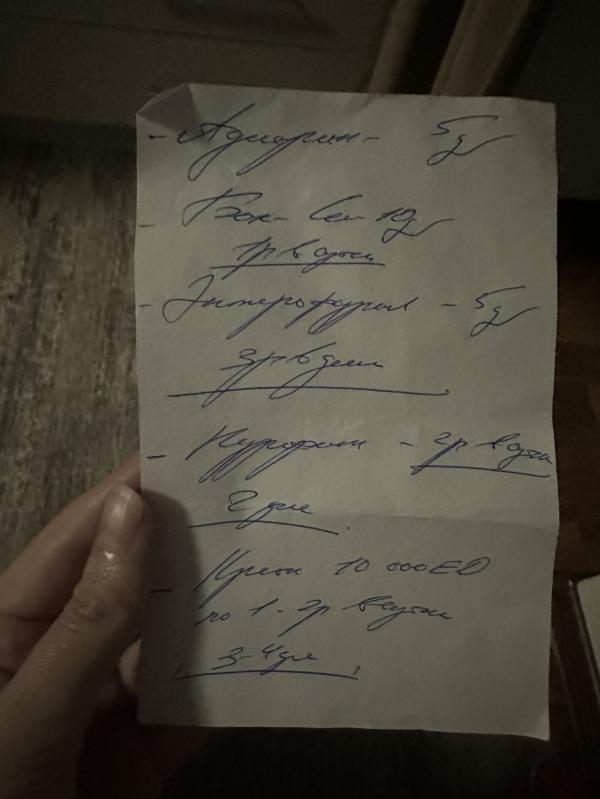 - Аджарин - 5g
- Бак- Сет 10g
1р в сутки
- Энтерофурил - 5g
3р в день
- Нурофен - 2р в сутки
2 дня
- Креон 10 000 ЕД
по 1 - 2р в сутки
3-4 дня